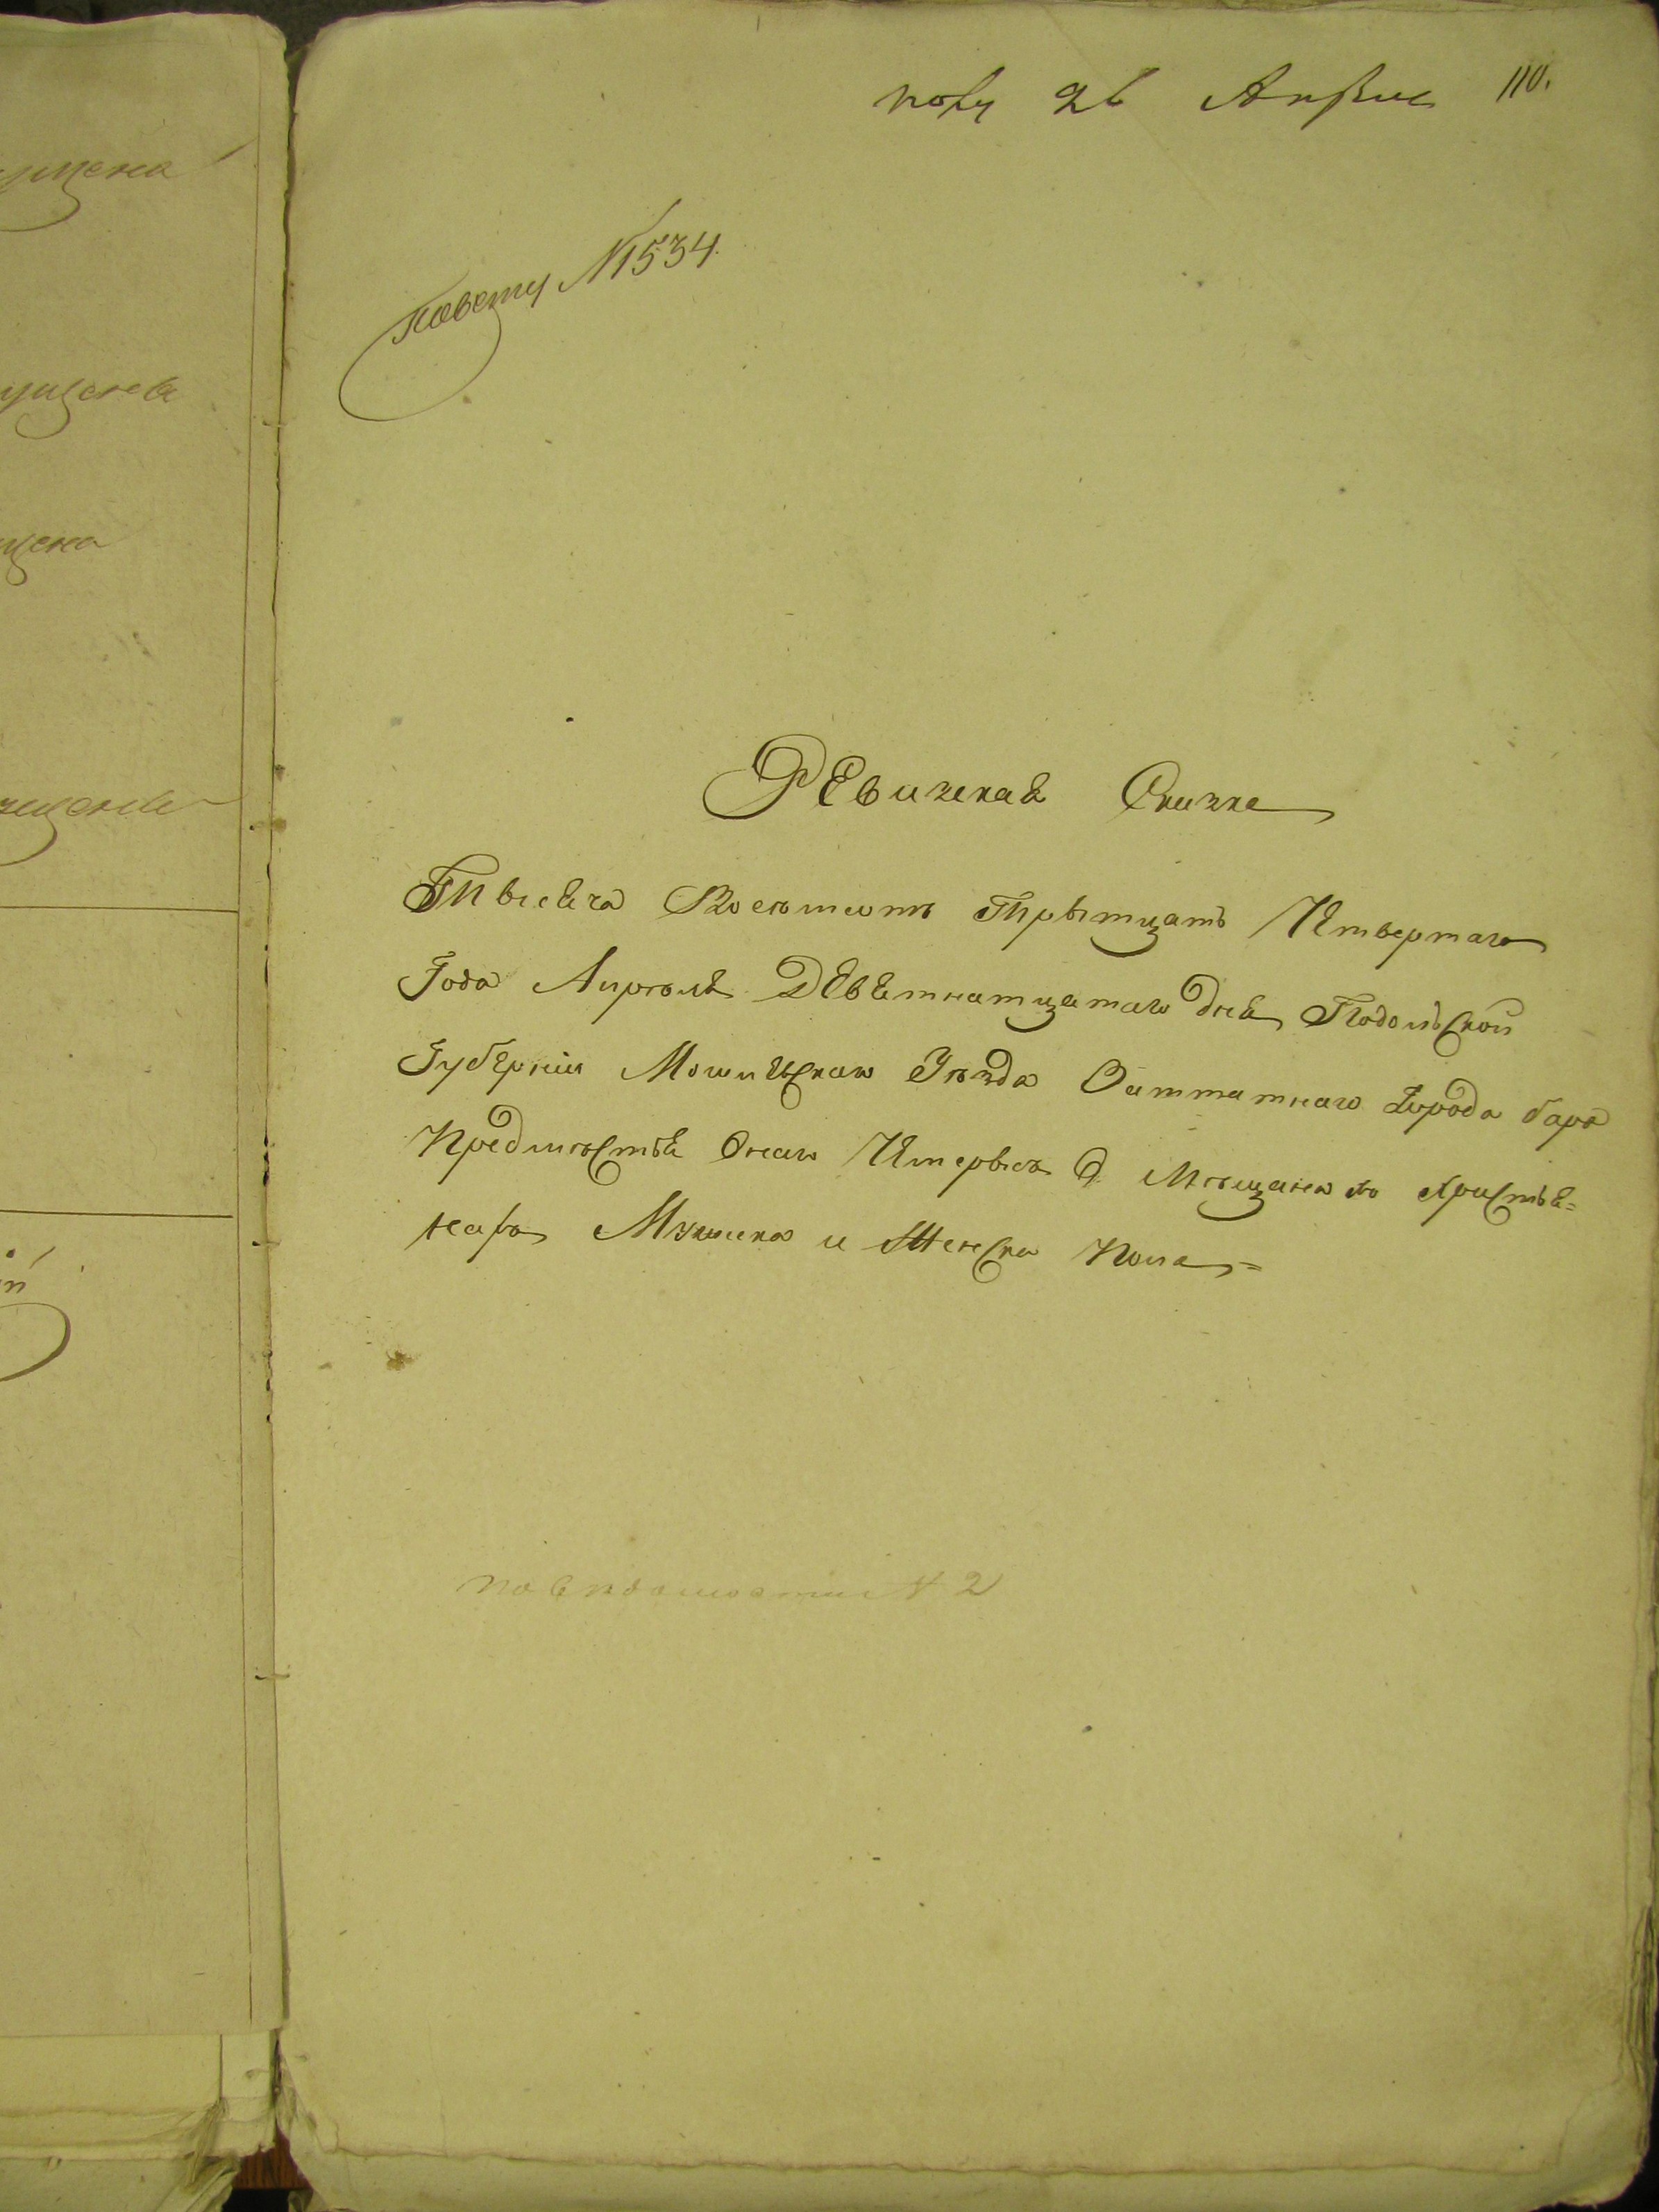 пол 26 Апреля 110.
по вету N 1534.
Ревизская Сказка
Тысеча Восемсотъ Трытцать Чтвертаго
Года Апреля Деветнатцатаго дня Подольской
Губернии Могилевскаго Уезда Заштатнаго Города бара
Предместя Онаго о Мещанахъ Християнахъ
Мужеска и Женска Пола =
по ведомости N 2